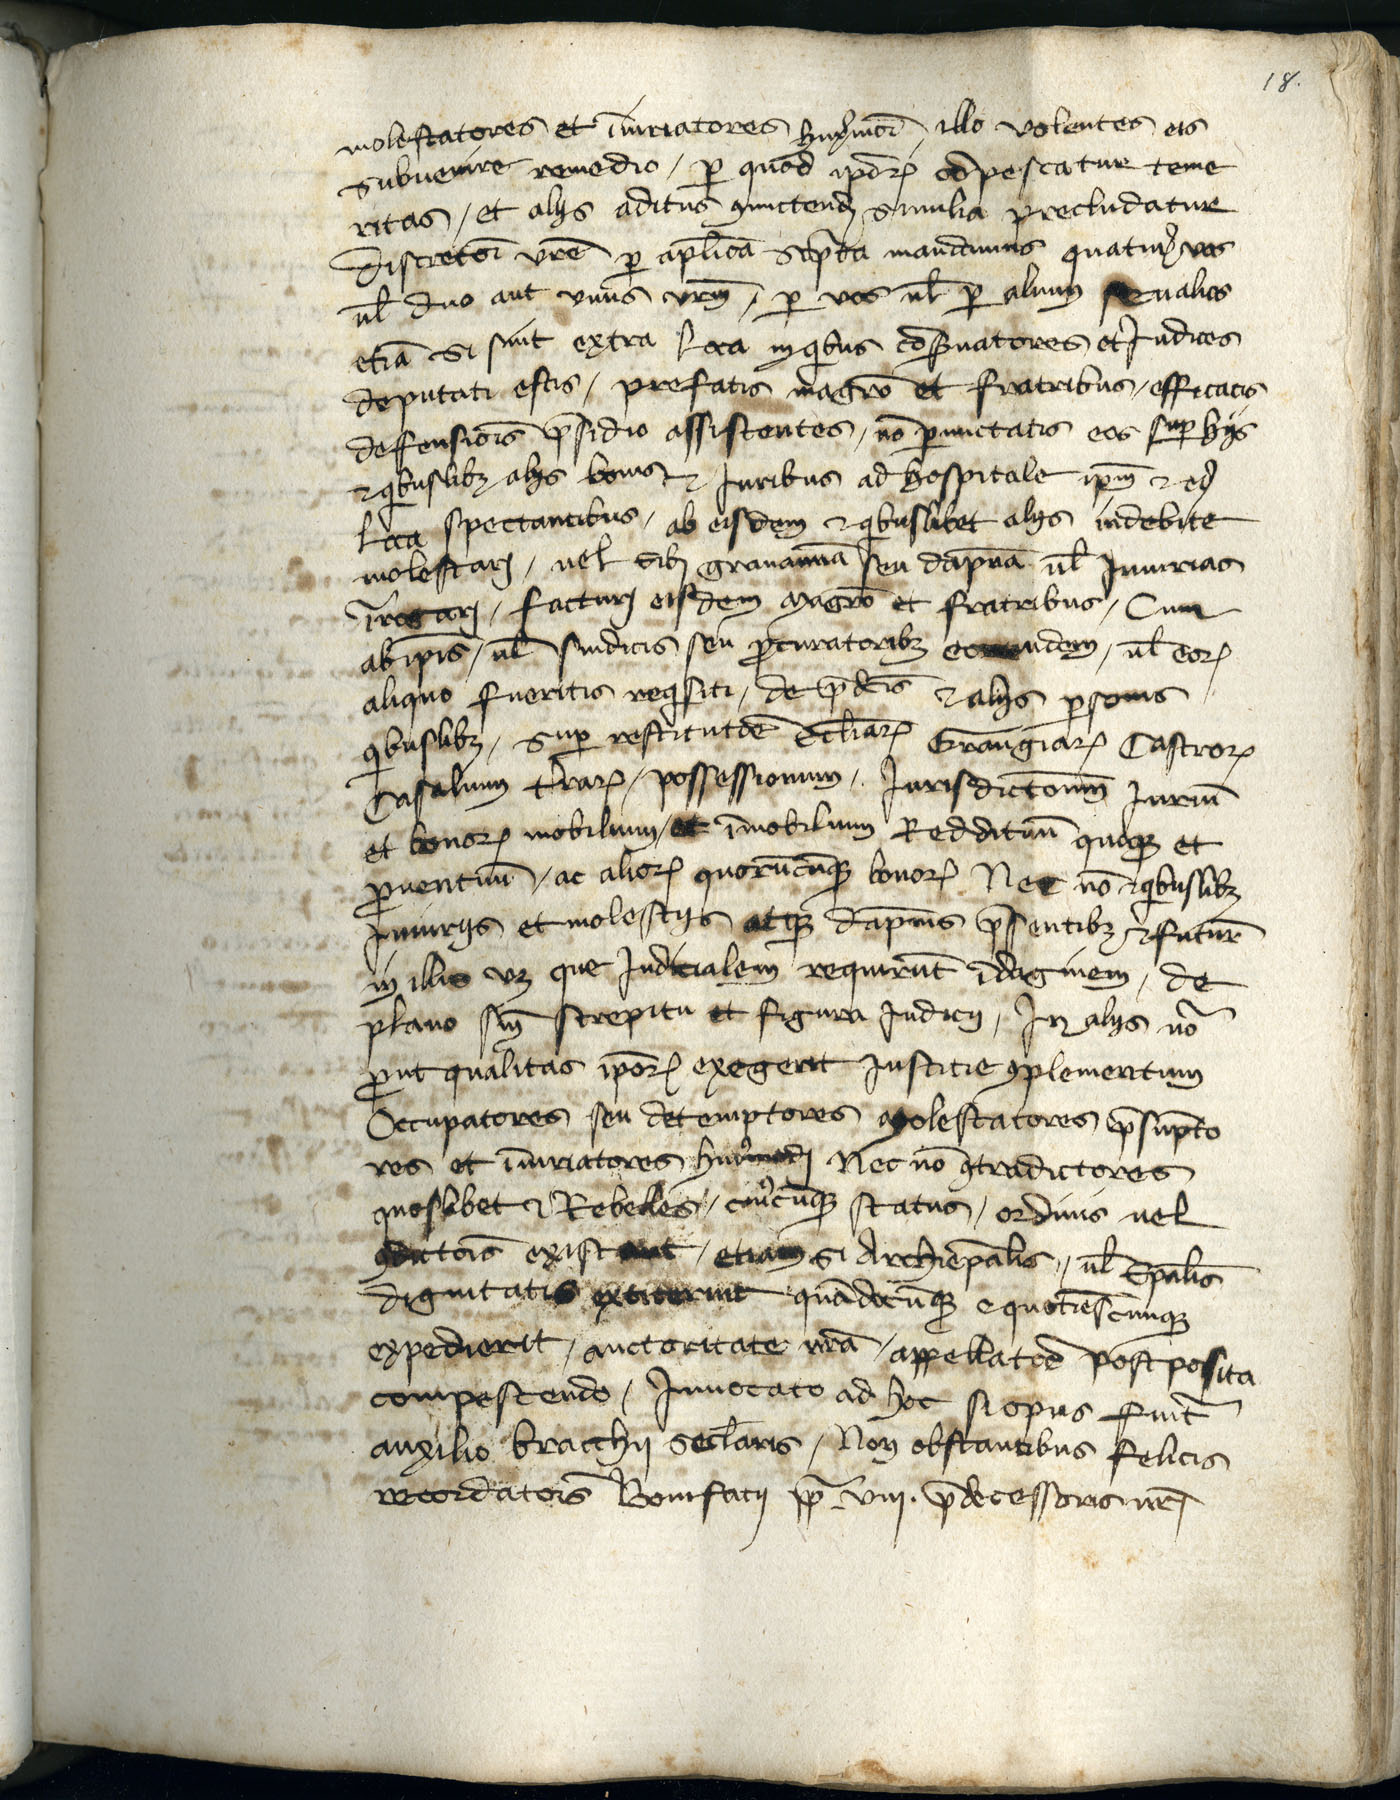 18.
molestatores et iniuriatores huiusmodi illo volentes eis
subuenire remedio / per quod ipsorum compescatur teme
ritas / et alijs aditus committendi similia precludatur
discretioni vestre per apostolica scripta mandamus quatinus vos
vel duo aut vnus vestrum / per vos vel per alium seu alios
etiam si sint extra loca in quibus conseruatores et Judices
deputati estis / prefatis magistro et fratribus / efficacis
deffensionis presidio assistentes / non permictatis eos super hijs
et quibuslibet alijs bonis et Juribus ad hospitale ipsum et eius
loca spectantibus / ab eisdem et quibuslibet alijs indebite
molestarj / uel sibj grauamina seu dampna vel Iniurias
irrogarj / facturj eisdem Magistro et fratribus / Cum
ab ipsis / vel sindicis seu procuratoribus eorundem / vel eorum
aliquo fueritis requisiti / de predictis et alijs personis
quibuslibet / super restitutione Ecclesiarum Grangiarum Castrorum
Casalium terrarum / possessionum / Iurisdictionum Iurium
et bonorum mobilium / et immobilium Reddituum quoque et
prouentuum / ac aliorum quorumcunque bonorum Nec non et quibuslibet
Iniurijs et molestijs atque dampnis presentibus et futuris
in illis videlicet que Iudicialem requirunt indaginem / de
plano sine strepitu et figura Iudicij / In alijs vero
prout qualitas ipsorum exegerit Iustitie complementum
Occupatores seu detemptores Molestatores presumpto
res et iniuriatores huiusmodj Nec non contradictores
quoslibet et Rebelles / cuiuscunque status / ordinis uel
condictionis existant / etiam si Archiepiscopalis / vel Episcopalis
dignitatis extiterint quandocunque et quotienscunque
expedierit / auctoritate nostra / appellatione postposita
compescendo / Innocato ad hoc si opus fuerit
auxilio bracchij secularis / Non obstantibus felicis
recordationis Bonifatij pape viij. predecessoris nostri